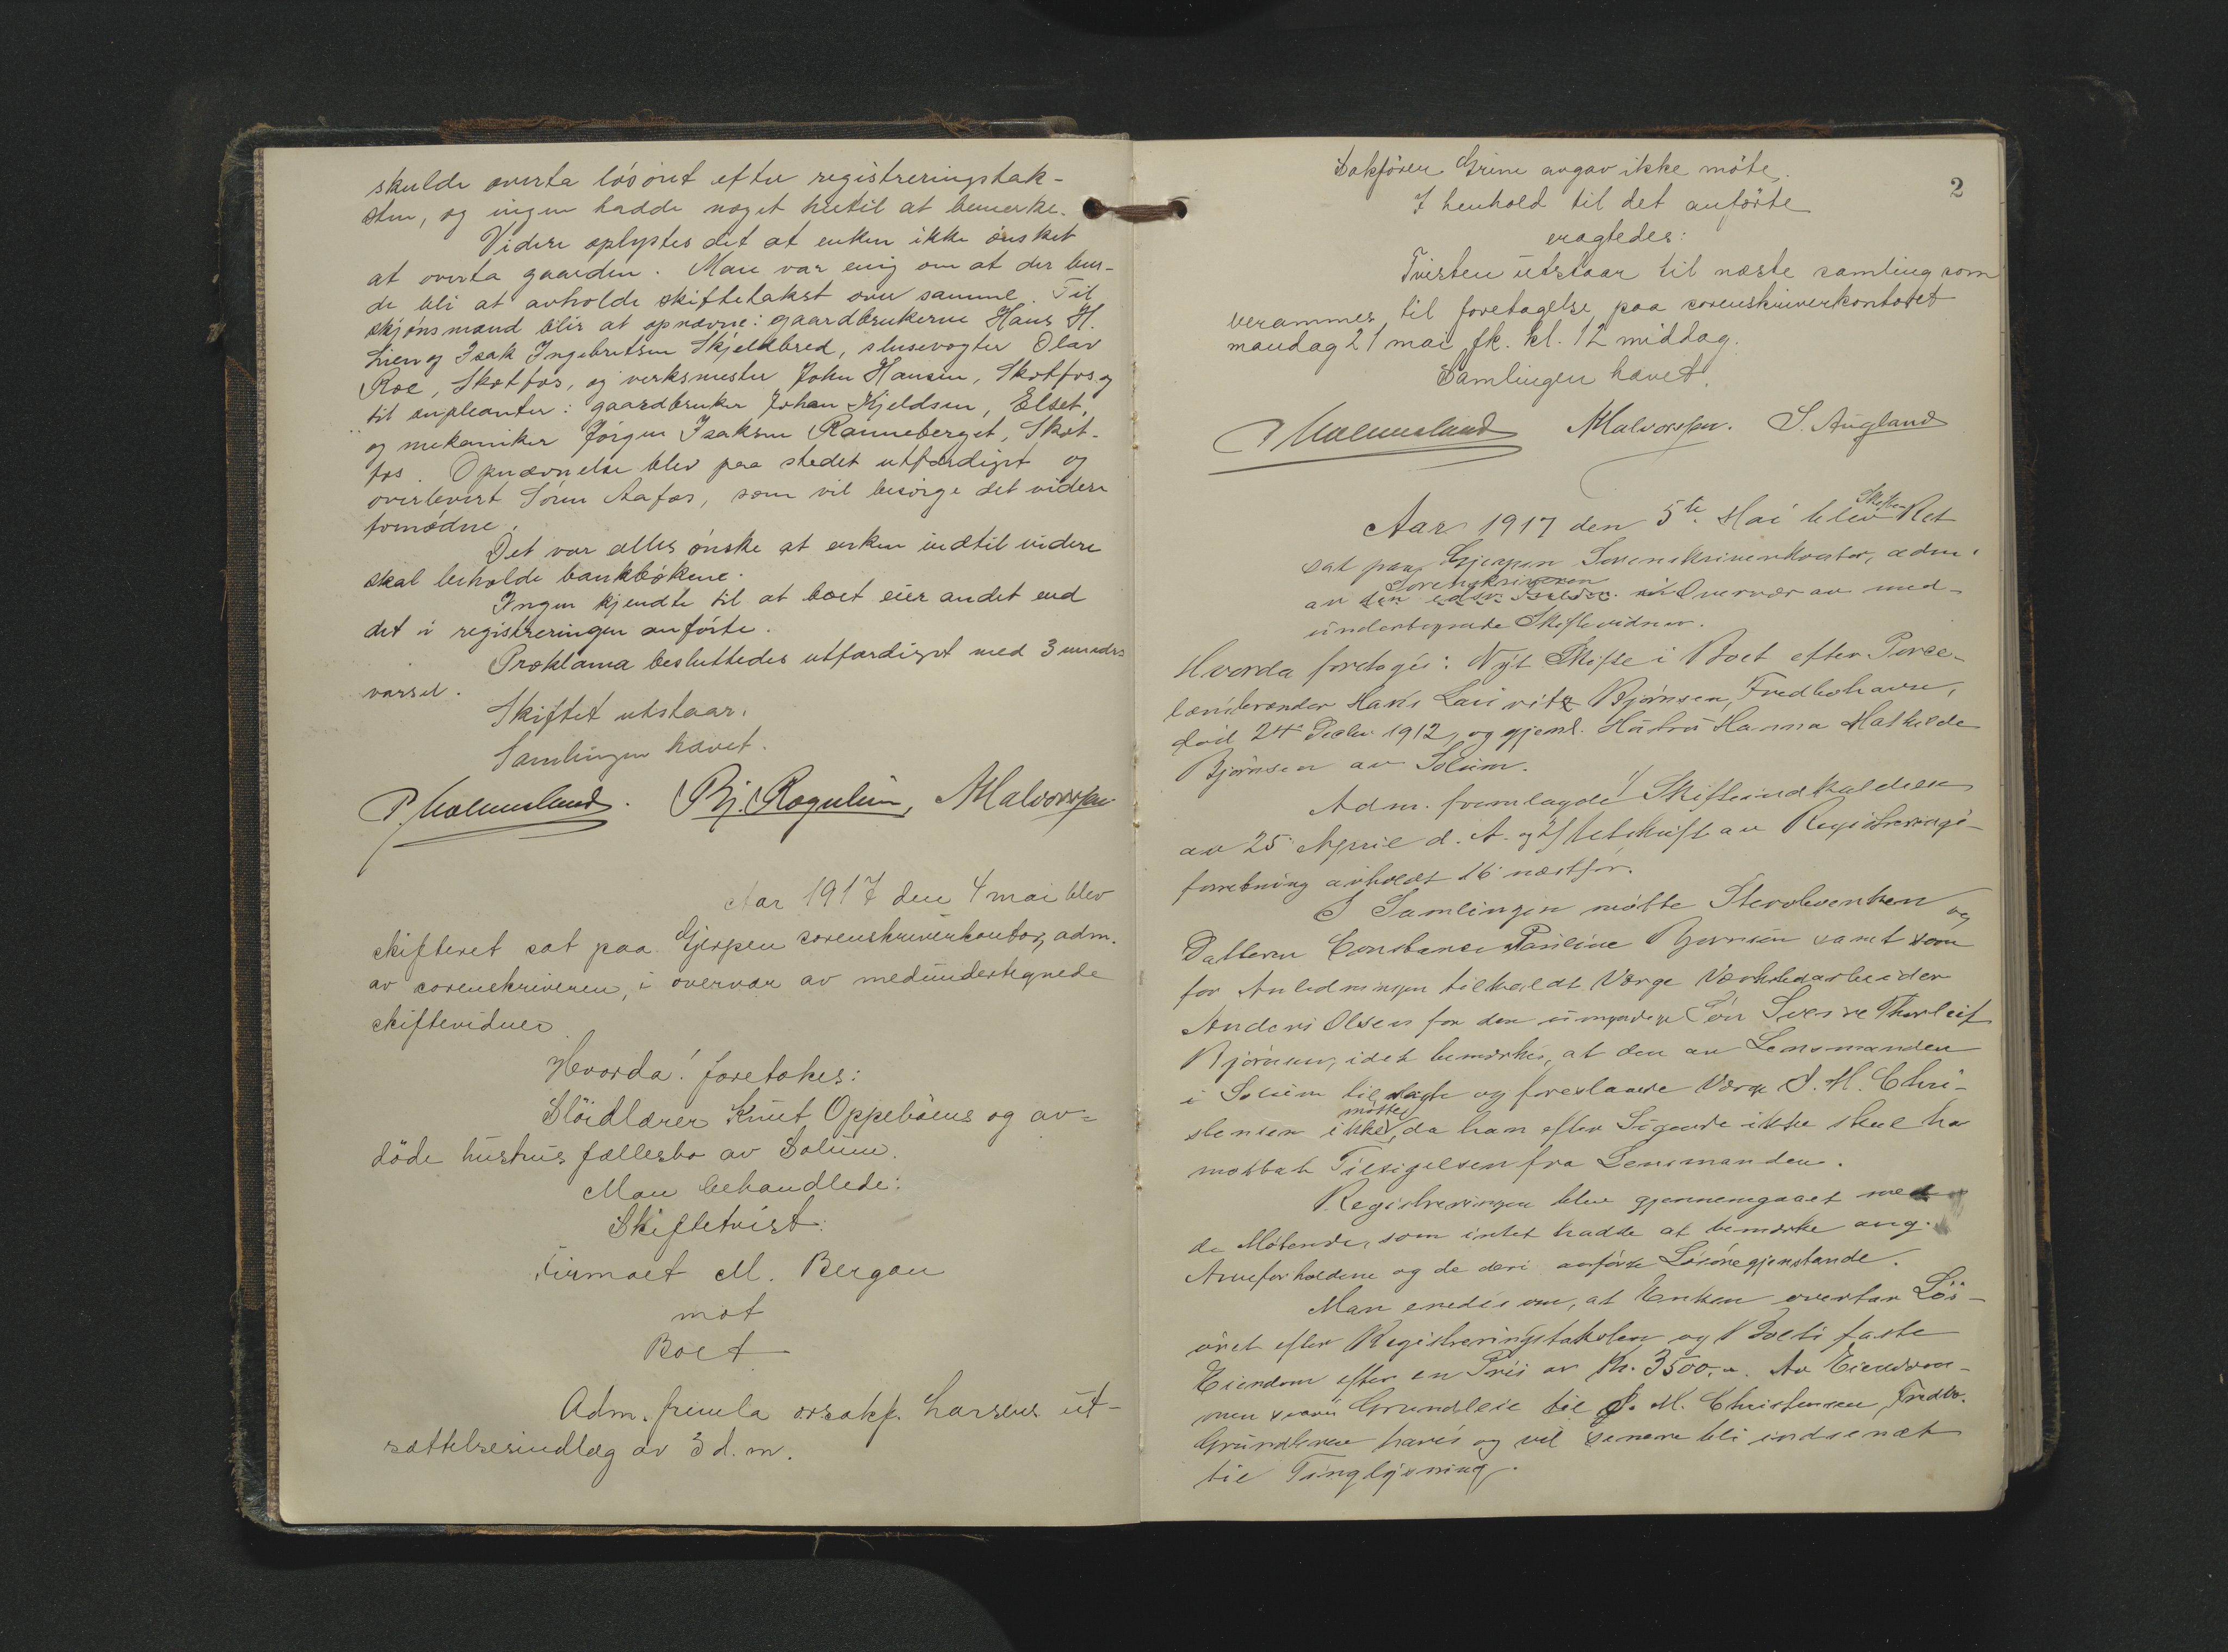 skulde overta lösöret efter registreringstak-
sten, og ingen hadde noget hertil at bemerke.
Videre oplystes det at enken ikke önsket
at overta gaarden. Man var enig om at der bur-
de bli at avholde skiftetakst over samme. Til
skjönsmænd blir at opnævne: gaardbrukerne Hans H.
Lien og Isak Ingebretsen Skjeldbred, slusevogter Olav
Roe, Skotfos, og verksmester John Hansen, Skotfos og
til supleanter: gaardbruker Johan Kjeldsen, Elset,
og mekaniker Jörgen Isaksen Ranneberget, Skot-
fos. Opnævnelse blev paa stedet utfærdiget og
overlevert Sören Aafos, som vil besörge det videre
fornödne.
Det var alles önske at enken indtil videre
skal beholde bankbökene.
Ingen kjendte til at boet eier andet end
det i registreringen anförte.
Proklama besluttedes utfærdiget med 3 mndrs
varsel.
Skiftet utstaar.
Samlingen hævet.
P. Holmesland. Bj. Rognlien, MHalvorsen
Aar 1917 den 4 mai blev
skifteret sat paa Gjerpen sorenskriverkontor, adm.
av sorenskriveren, i overvær av medundertegnede
skiftevidner
Hvorda! foretokes:
Slöidlærer Knut Oppebőens og av-
döde hustrus fællesbo av Solum.
Man behandlede:
Skiftetvist:
Firmaet M. Bergan
mot
Boet
Adm. fremla orsakf. Larsens ut-
sættelsesindlæg av 3 d.m.
2
Sakförer Grini avgav ikke möte.
I henhold til det anförte
eragtedes:
Tvisten utstaar til næste samling som
berammes til foretagelse paa sorenskriverkontoret
mandag 21 mai fk. kl. 12 middag.
Samlingen hævet.
P Holmesland MHalvorsen. S. Augland
Aar 1917 den 5te Mai blev Skifte Ret
sat paa Gjerpen Sorenskriverkontor, adm.
av Sorenskriveren i Overvær av med-
undertegnede Skiftevidner.
Hvorda foretoges: Nyt Skifte i Boet efter Porce-
lænsbrænder Hans Lauritz Björnsen, Fredbohavn,
död 24de Decbr 1912, og gjenl. Hustru Hanna Mathilde
Björnsen av Solum.
Adm. fremlagde 1/ Skifteindkaldelse
av 25 April d. A. og 2/ Utskrift av Registrerings-
forretning avholdt 16 næstfør.
I Samlingen mötte Stervboenken og
Datteren Constance Pauline Björnsen samt som
for Anledningen tilkaldt Værge Værkstedarbeider
Anders Olsen for den umyndige Sön Sverre Thorleif
Björnsen, idet bemerkes, at den av Lensmanden
i Solum tilsagte og foreslaaede Værge J. M. Chri-
stensen ikke mötte, da han efter Sigende ikke skal ha
mottat Tilsigelsen fra Lensmanden.
Registreringen blev gjennemgaaet med
de Mötende, som intet hadde at bemerke ang.
Arveforholdene og de deri anförte Lösöregjenstande.
Man enedes om, at Enken overtar Lös-
öret efter Registreringstaksten og Boets faste
Eiendom efter en Pris av Kr. 3500.-. Av Eiendom-
men svares Grundleie til J. M. Christensen, Fredbo.
Grundbrev haves og vil senere bli indsendt
til Tinglysning.